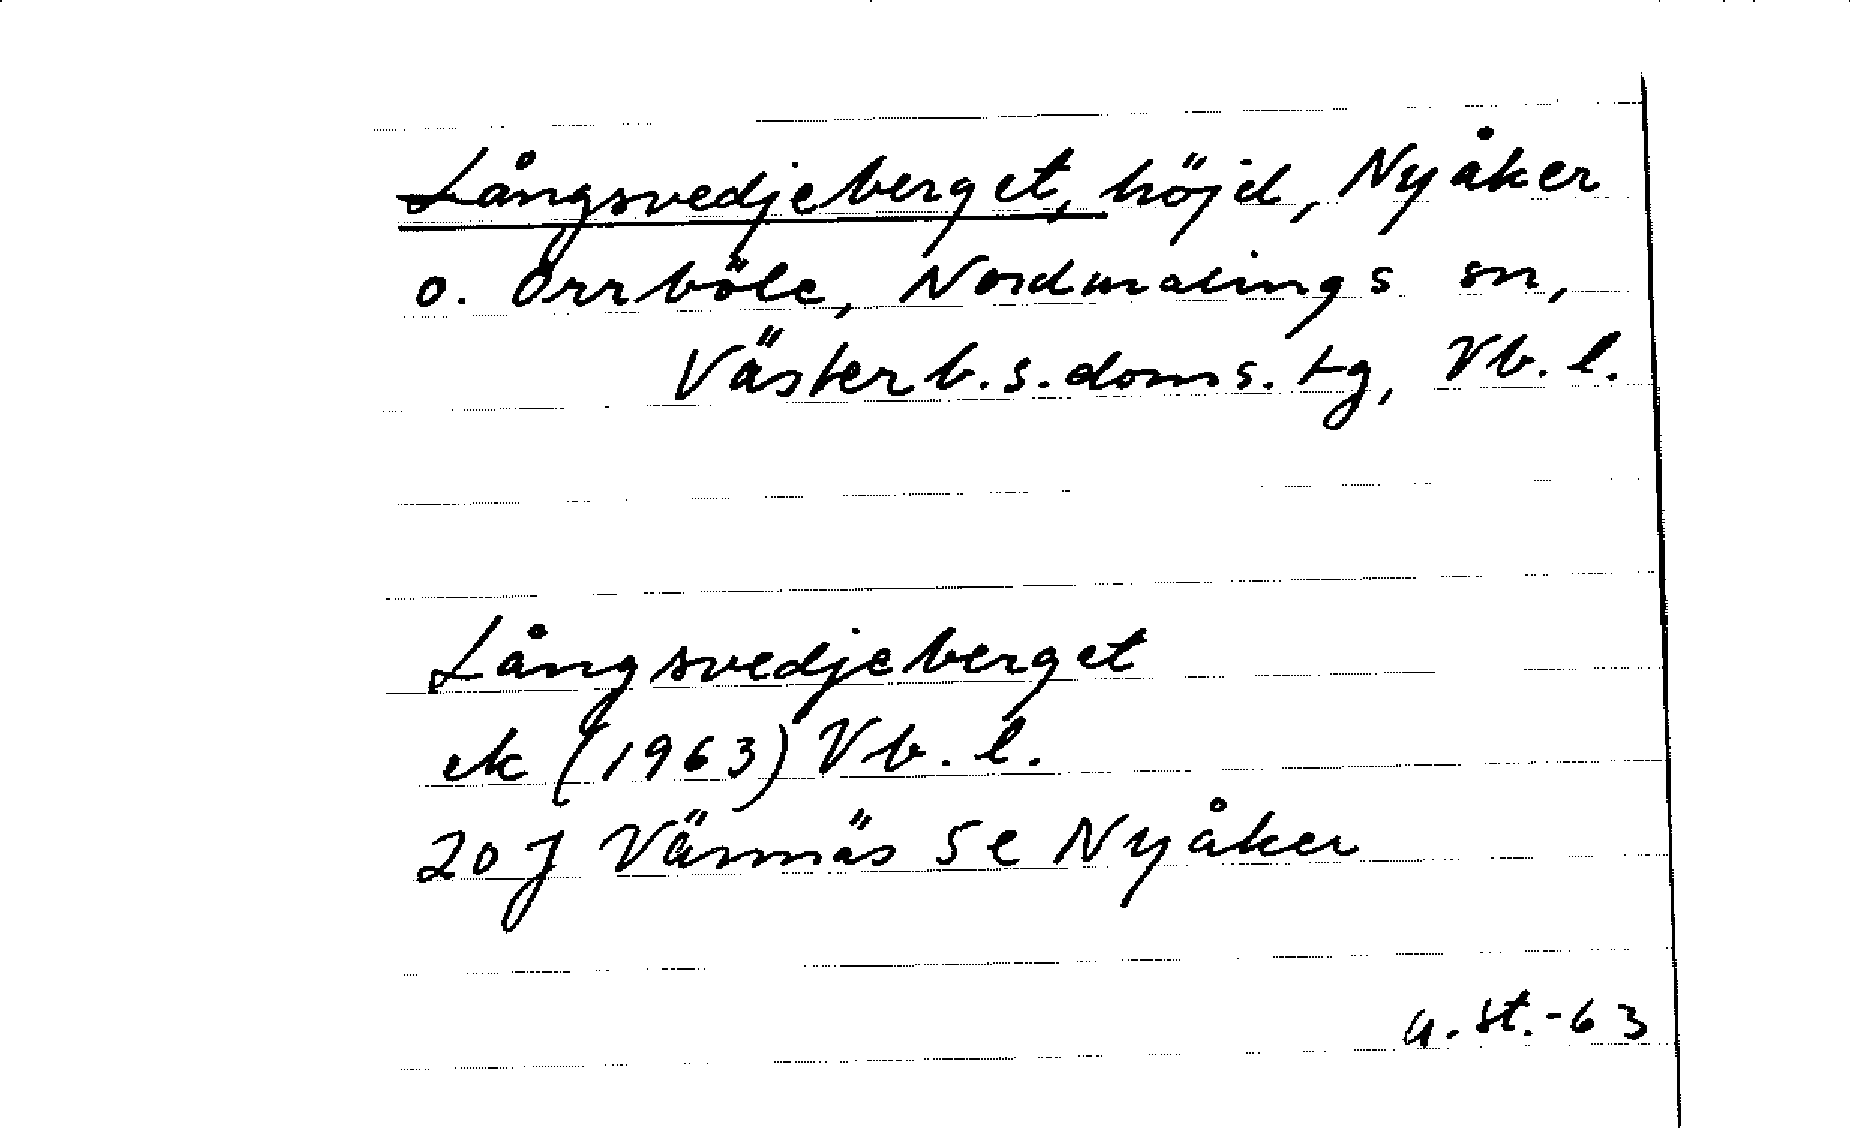 Långsvedjeberget, höjd, Nyåker
o. Örrböle, Nordmalings sn,
Västerb.s.doms.tg, Vb.l.
Långsvedjeberget
ek (1963) Vb.l.
20J Vännäs 5e Nyåker
G.St.-63